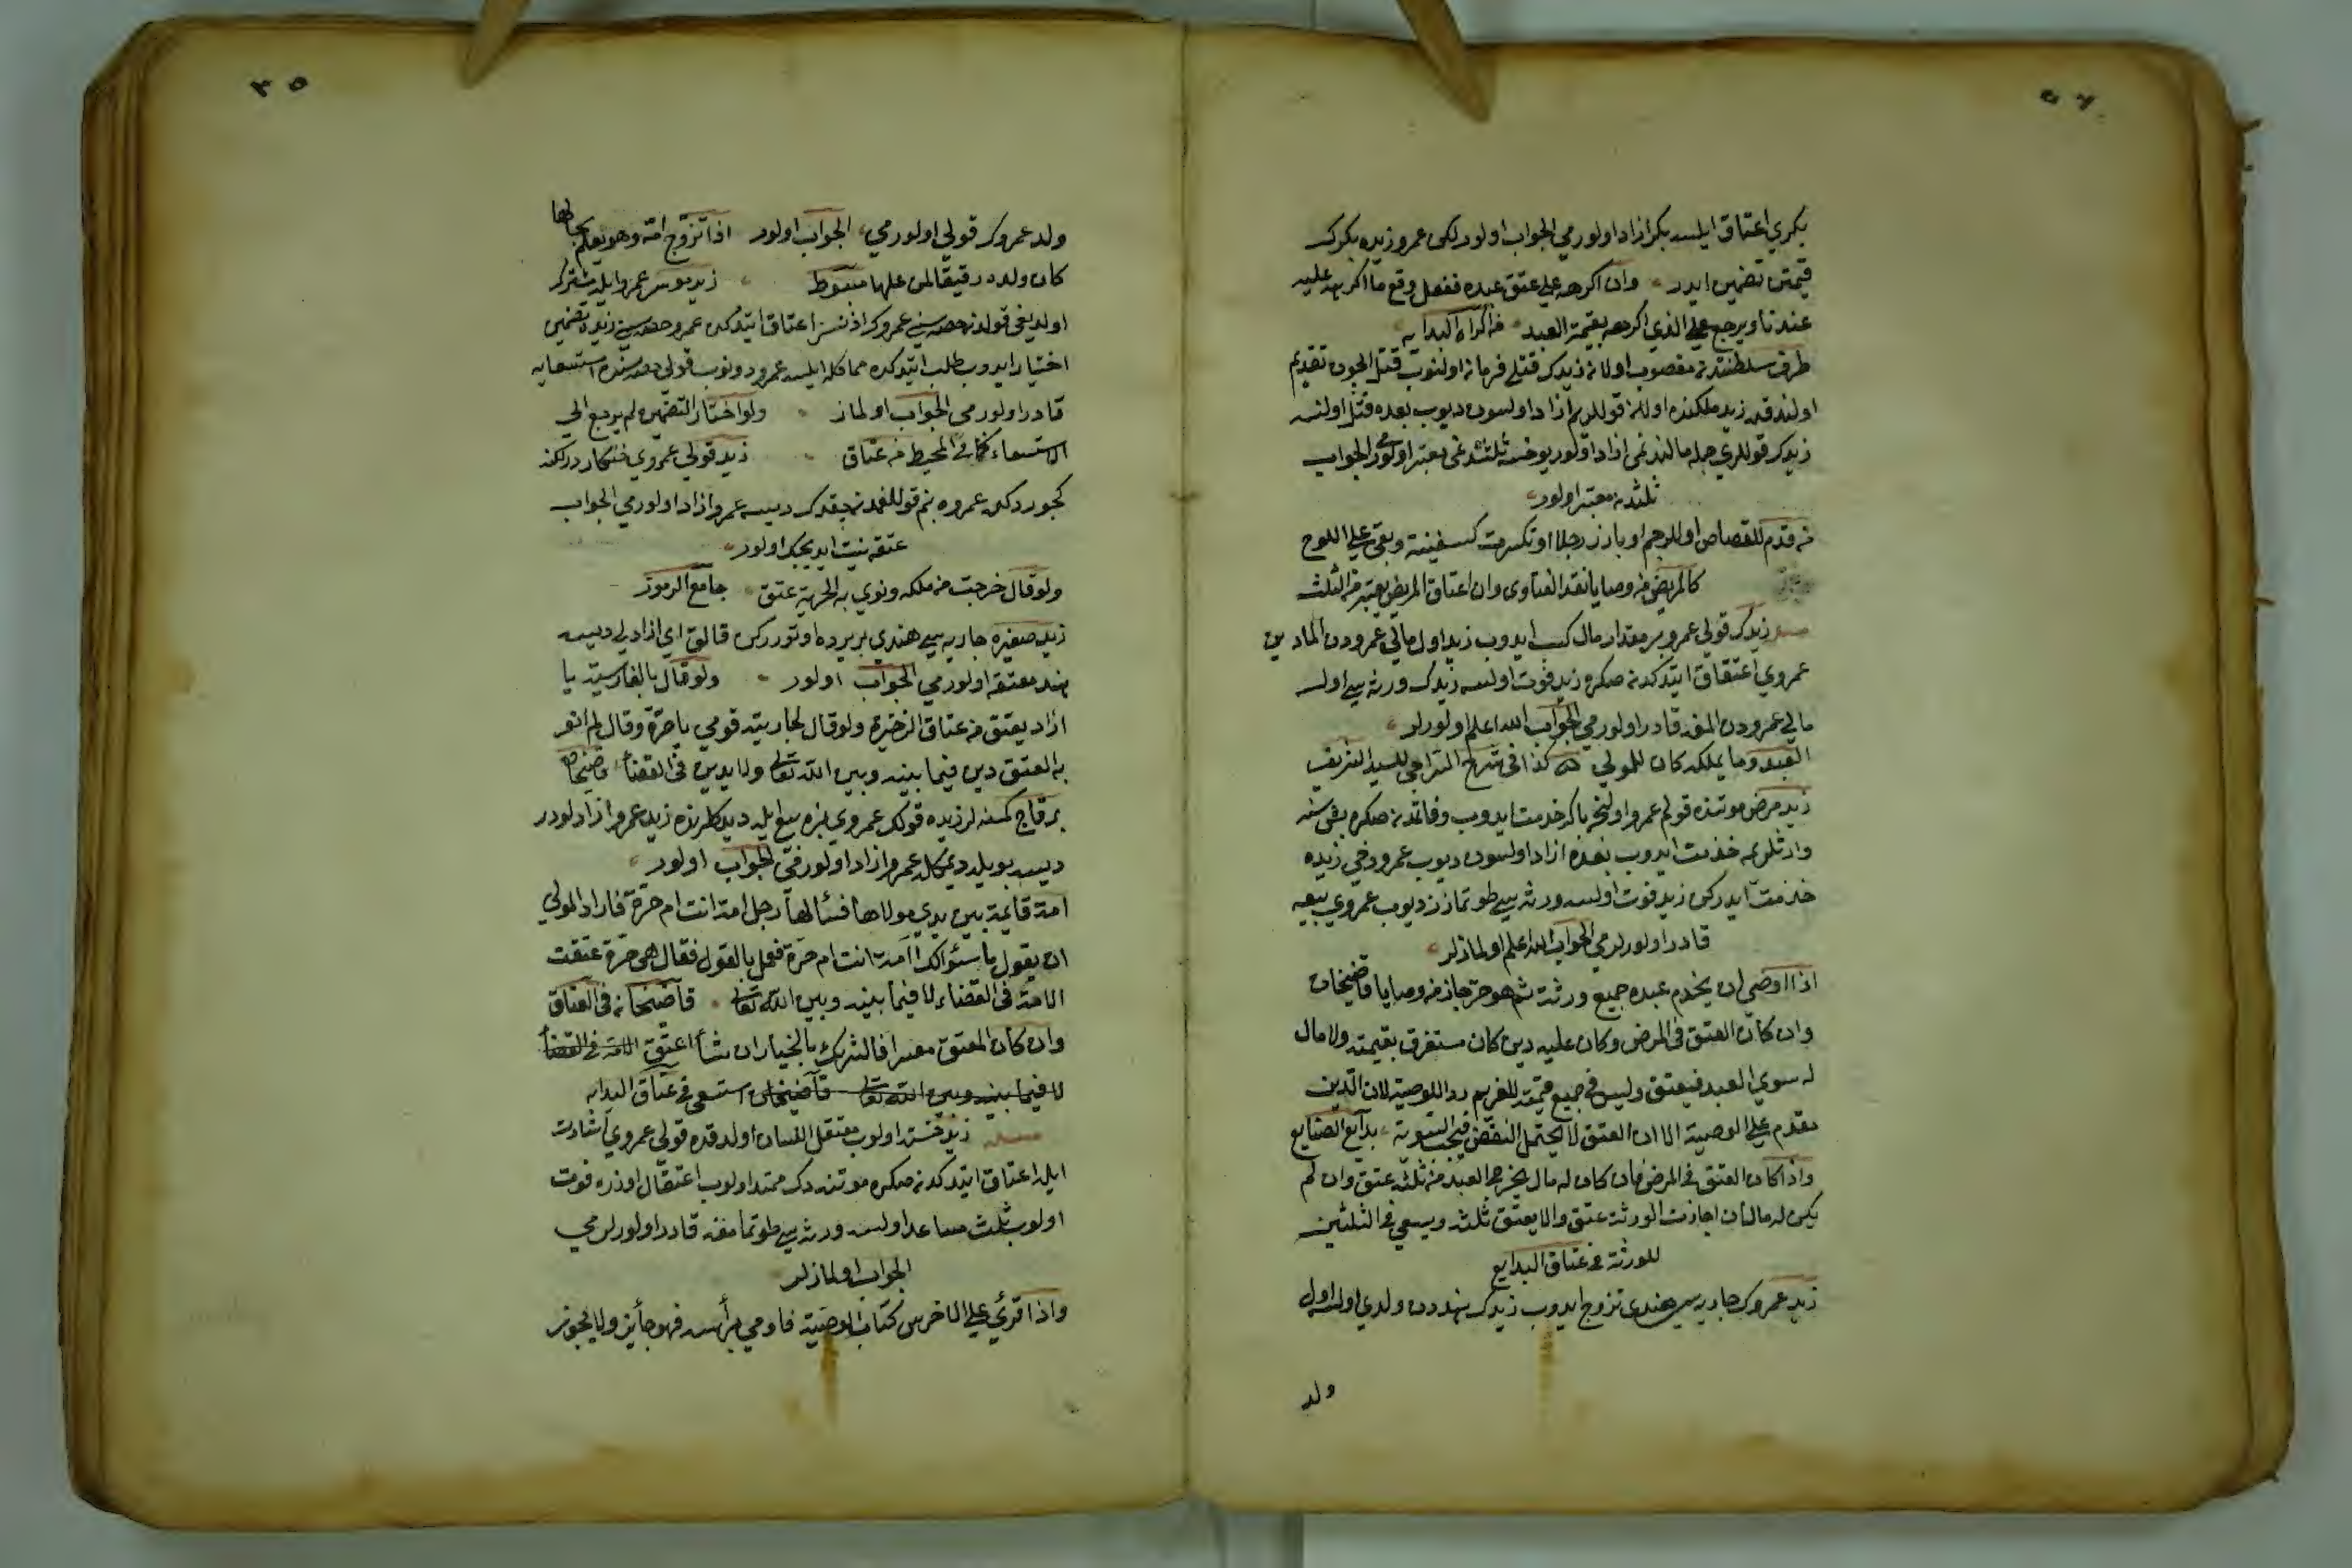 بكري اعتاق ايلسه بكر ازاد اولورمي الجواب اولور لكن عمرو زيده بكرك
قيمتن تضمين ايدر وان اكرهه على عتق عبده ففعل وقع ما اكره عليه
عندنا ويرجع على الذي اكرهه بقيمة العبد
اولندقده زيد ملكنده اولان قوللرم ازاد اولسون ديوب بعده قتل اولنسه
زيدك قوللري جمله مالندنمى ازاد اولور يوخسه ثلثندنمى معتبر اولور الجواب
ثلثدن معتبر اولور
من قدم للقصاص او للرجم او بارز رجلا او تكسرت سفينة وبقى على اللوح
كالمريض من وصايا نقد الفتاوى وان اعتاق المريض يعتبر من الثلث
زيدك قولي عمرو بر مقدار مال كسب ايدوب زيد اول مالي عمرودن المادين
عمروي اعتاق ايتدكدنصكره زيد فوت اولسه زيدك ورثه سي اول
مالي عمرودن المغه قادر اولورمي الجواب الله اعلم اولورلر
العبد وما يملكه كان للمولي كذا في شرح السراجي للسيد الشريف
زيد مرض موتنده قولم عمرو اولنجه بكا خدمت ايدوب وفاتمدنصكره بش سنه
وارثلريمه خدمت ايدوب بعده ازاد اولسون ديوب عمرو دخي زيده
خدمت ايدركن زيد فوت اولسه ورثه سي طوتمازز ديوب عمروي بيعه
قادر اولورلرمي الجواب الله اعلم اولمازلر
اذا اوصى ان يخدم عبده جميع ورثته ثم هو حر جاز من وصايا قاضيخان
وان كان العتق في المرض وكان عليه دين كان مستغرق بقيمته ولا مال
له سوي العبد فيعتق وليس في جميع قيمته للغريم ردا للوصية لان الدين
مقدم على الوصية الا ان العتق لا يحتمل النقض بدايع الصنايع
واذا كان العتق في المرض فان كان له مال يخرج العبد من ثلثه عتق وان لم
يكن له مال ان اجازت الورثة عتق والا يعتق ثلثه ويسعى في الثلثين
للورثة من عتاق البدايع
زيد عمروك جاريه سي هندي تزوج ايدوب زيدك هنددن ولدي اولسه اول
ولد
ولد عمروك قولي اولورمي الجواب اولور اذا تزوج امة وهو يعلم بحالها
كان ولده رقيقا لمن علها مبسوط زيد عمرو ايله مشترك
اختيار ايدوب طلب ايتدكده عمرو دونوب قولي حصه سنده استسعايه
قادر اولورمي الجواب اولماز ولو اختار التضمين لم يرجع الى
الاستسعاء كما في المحيط من عتاق زيد قولي عمروي
عمروه بنم قوللغمدن چقدك ديسه عمرو ازاد اولورمي الجواب
عتقه نيت ايديجك اولور
ولو قال خرجت من ملكه ونوي به الحرية عتق جامع الرموز
زيد صغيره جاريه سي هندي بر يرده اوتوررکن قالق اي ازادلي ديسه
هند معتقه اولورمي الجواب اولور ولو قال بالفارسية يا
ازاد يعتق من عتاق الذخيرة ولو قال لجاريته قومي يا حرة وقال لم انو
به العتق دين فيما بينه وبين الله تعالى ولا يدين في القضاء قاضيخان
بر قاچ كمسنه لر زيده قولك عمروي بزه بيع ايله ديدكلرنده زيد عمرو ازادلودر
ديسه بويله ديمكله عمرو ازاد اولور الجواب اولور
امة قائمة بين يدي مولاها فسألها رجل امة انت ام حرة فاراد المولي
ان يقول ما سئوالك اامة انت ام حرة فعجل بالقول فقال هي حرة عتقت
الامة في القضاء لا فيما بينه وبين الله تعالى قاضيخان في العتاق
وان كان المعتق معسرا فالشريك بالخيار ان شاء اعتق الامة في القضاء
لا فيما بينه وبين الله تعالى قاضيخان استسعى في عتاق الهدايه
زيد خسته اولوب معتقل اللسان اولدقده قولي عمروي اشارت
ايله اعتاق ايتدكدنصكره موتنه دك ممتد اولوب اعتقال اوزره فوت
اولوب ثلث مساعد اولسه ورثه سي طوتمامغه قادر اولورلرمي
الجواب اولمازلر
واذا قرئ على الاخرس كتاب الوصية فاومي برأسه فهو جائز ولا يجوز